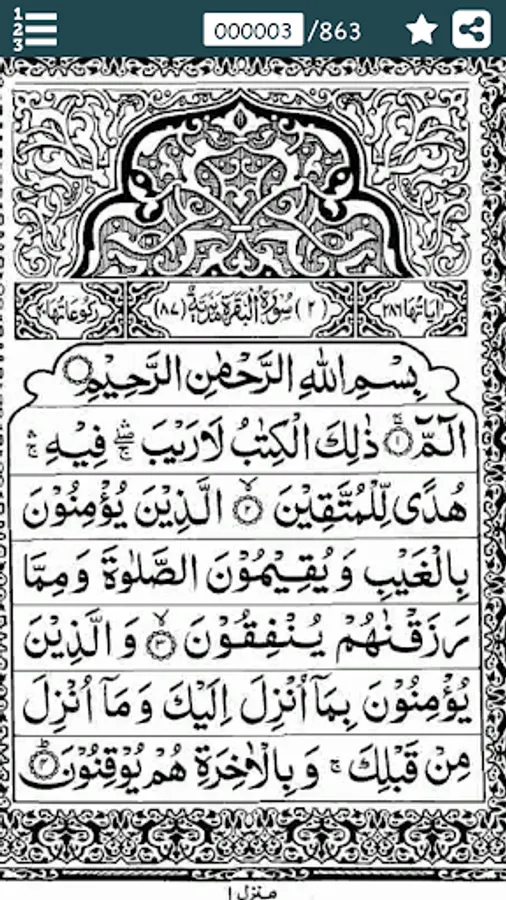 1
2
3
000003 /863
اٰیَاتُهَا ٢٨٦ (٢) سُوْرَةُ الْبَقَرَةِ مَدَنِيَّةٌ (٨٧) رُكُوْعَاتُهَا ٤٠
بِسْمِ اللهِ الرَّحْمٰنِ الرَّحِيْمِ
الٓمّٓ ۚ ﴿١﴾ ذٰلِكَ الْكِتٰبُ لَا رَيْبَ ۛۖۚ فِيْهِ ۛۚ
هُدًى لِّلْمُتَّقِيْنَ ۙ ﴿٢﴾ الَّذِيْنَ يُؤْمِنُوْنَ
بِالْغَيْبِ وَيُقِيْمُوْنَ الصَّلٰوةَ وَمِمَّا
رَزَقْنٰهُمْ يُنْفِقُوْنَ ۙ ﴿٣﴾ وَالَّذِيْنَ
يُؤْمِنُوْنَ بِمَآ اُنْزِلَ اِلَيْكَ وَمَآ اُنْزِلَ
مِنْ قَبْلِكَ ۚ وَبِالْاٰخِرَةِ هُمْ يُوْقِنُوْنَ ؕ ﴿٤﴾
منزل ١